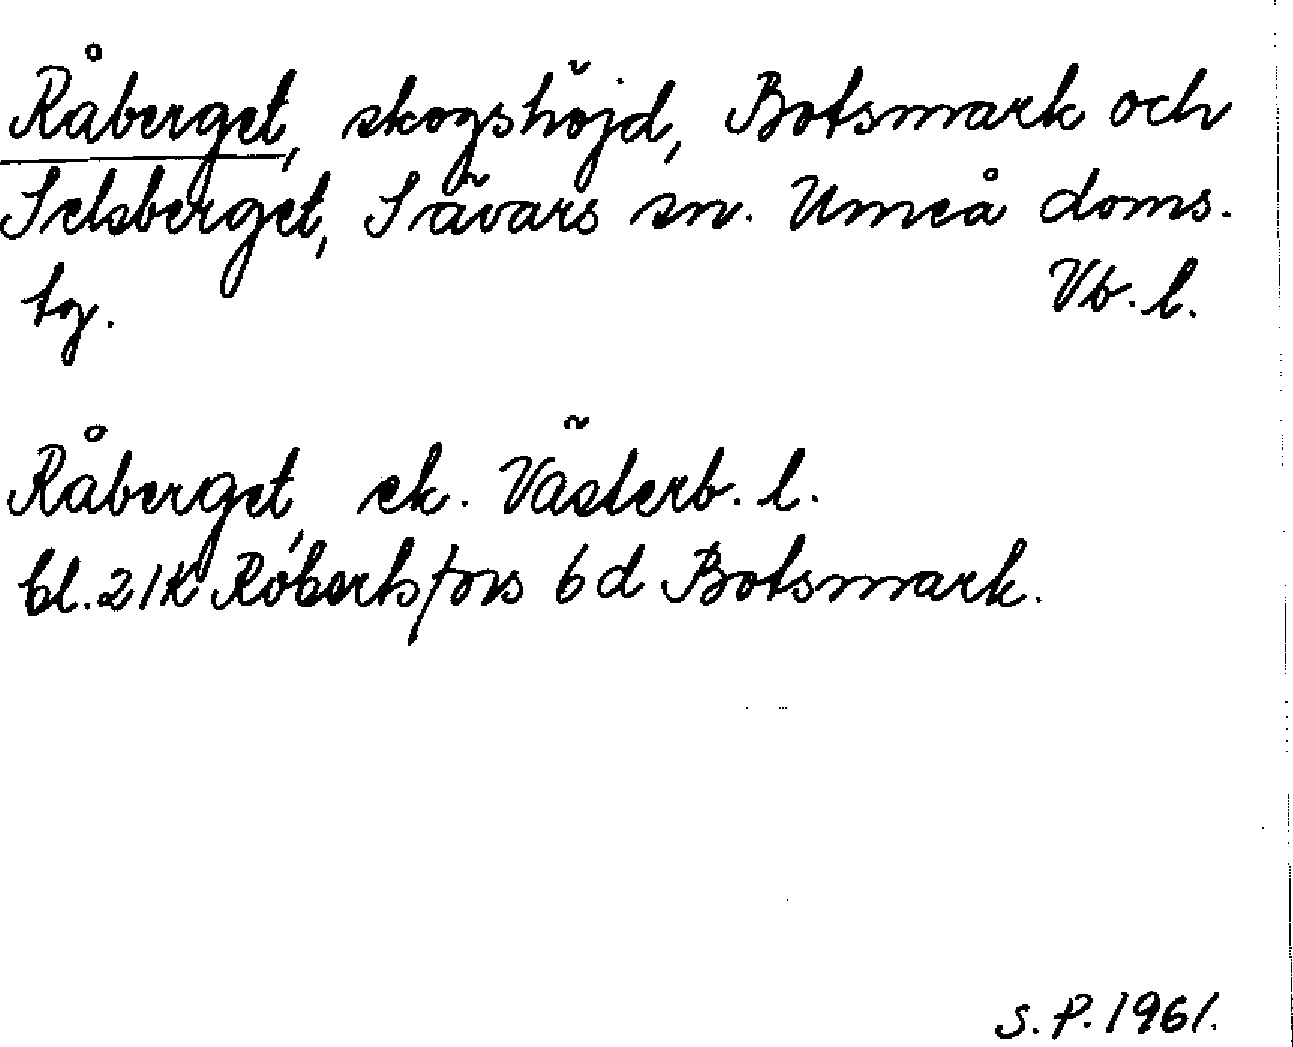 Råberget, skogshöjd, Botsmark och
Selsberget, Sävars sn. Umeå doms.
tg. Vb. l.
Råberget, ek. Västerb. l.
bl. 21K Robertsfors 6d Botsmark.
S. P. 1961.